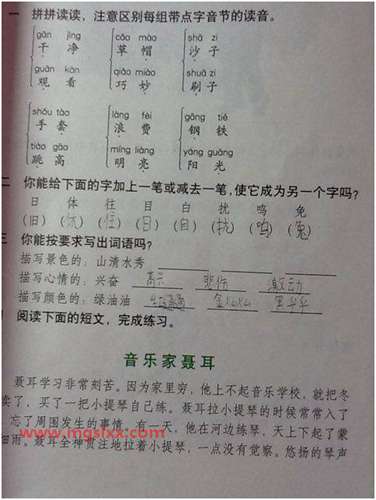 一 拼拼读读，注意区别每组带点字音节的读音。
gān jìng cǎo mào shā zi
干 净 草 帽 沙 子
guān kàn qiǎo miào shuā zi
观 看 巧 妙 刷 子
shǒu tào làng fèi gāng tiě
手 套 浪 费 钢 铁
tiào gāo míng liàng yáng guāng
跳 高 明 亮 阳 光
二 你能给下面的字加上一笔或减去一笔，使它成为另一个字吗？
日 体 往 目 白 扰 鸣 免
(旧) ( ) (住) (日) (自) (拢) (鸣) (兔)
三 你能按要求写出词语吗？
描写景色的：山清水秀
描写心情的：兴奋 高兴 悲伤 激动
描写颜色的：绿油油 金灿灿 黑乎乎
阅读下面的短文，完成练习。
音乐家聂耳
聂耳学习非常刻苦。因为家里穷，他上不起音乐学校，就把冬
卖了，买了一把小提琴自己练。聂耳拉小提琴的时候常常入了
忘了周围发生的事情。有一天，他在河边练琴，天上下起了蒙
细雨。聂耳全神贯注地拉着小提琴，一点没有觉察。悠扬的琴声
www.mgslxx.com